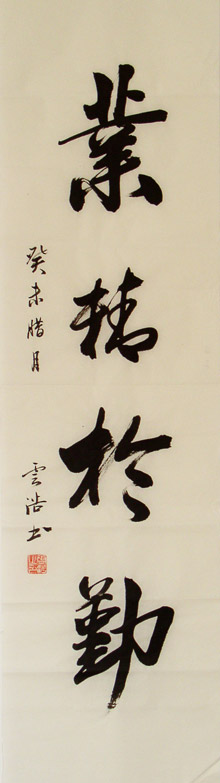 業精於勤
癸未腊月
雲浩书